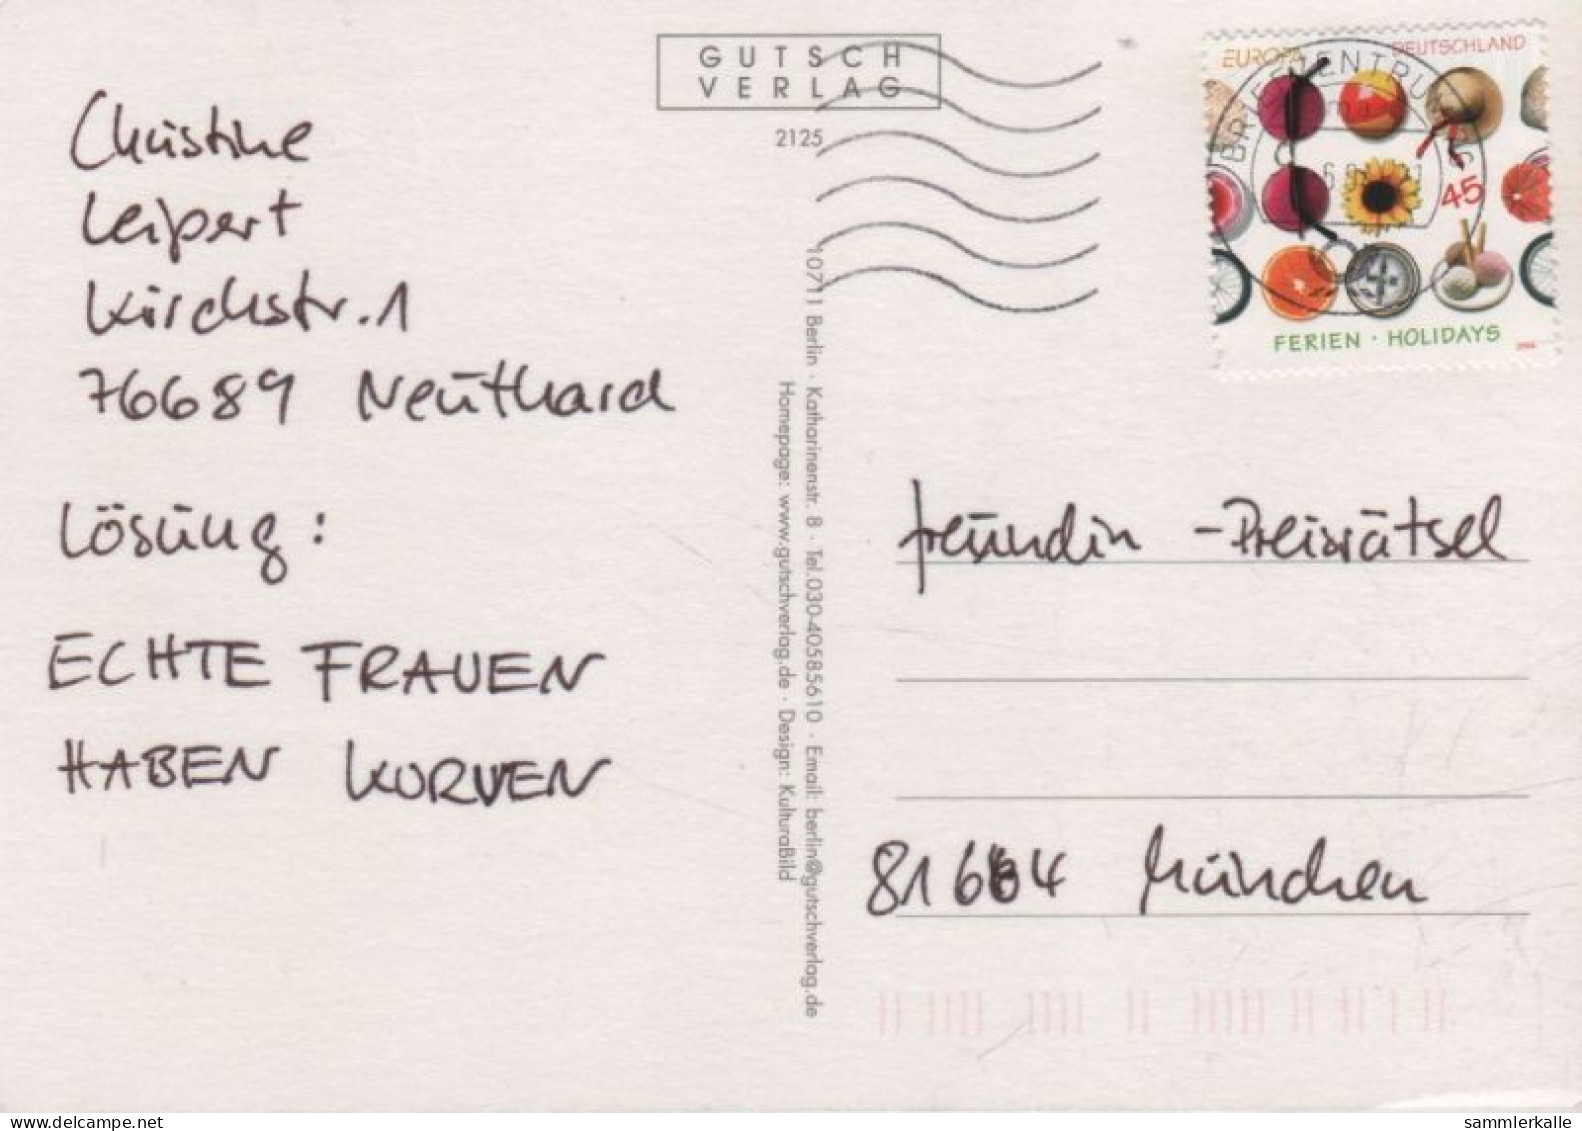 GUTSCH
VERLAG
2125
Christine
Leipert
Kirchstr. 1
76689 Neuthard
Lösung:
ECHTE FRAUEN
HABEN KURVEN
10711 Berlin · Katharinenstr. 8 · Tel.030-40585610 · Email: berlin@gutschverlag.de
Homepage: www.gutschverlag.de · Design: KulturaBild
EUROPA DEUTSCHLAND
45
FERIEN · HOLIDAYS
BRIEFZENTRUM
freundin - Preisrätsel
81664 München
sammlerkalle